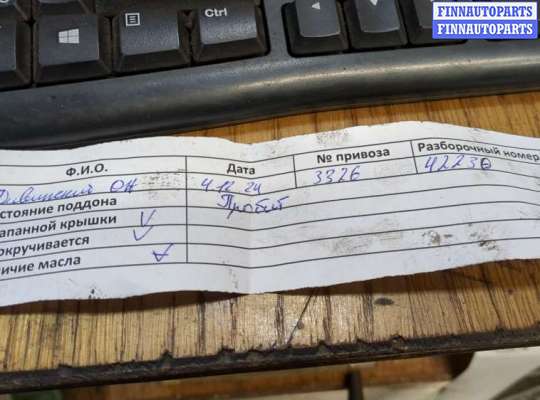 Ctrl
FINNAUTOPARTS
FINNAUTOPARTS
Ф.И.О. Дата № привоза Разборочный номер
ОН 4 12 24 3326 42230
стояние поддона Пробит
апанной крышки V
окручивается V
ичие масла V